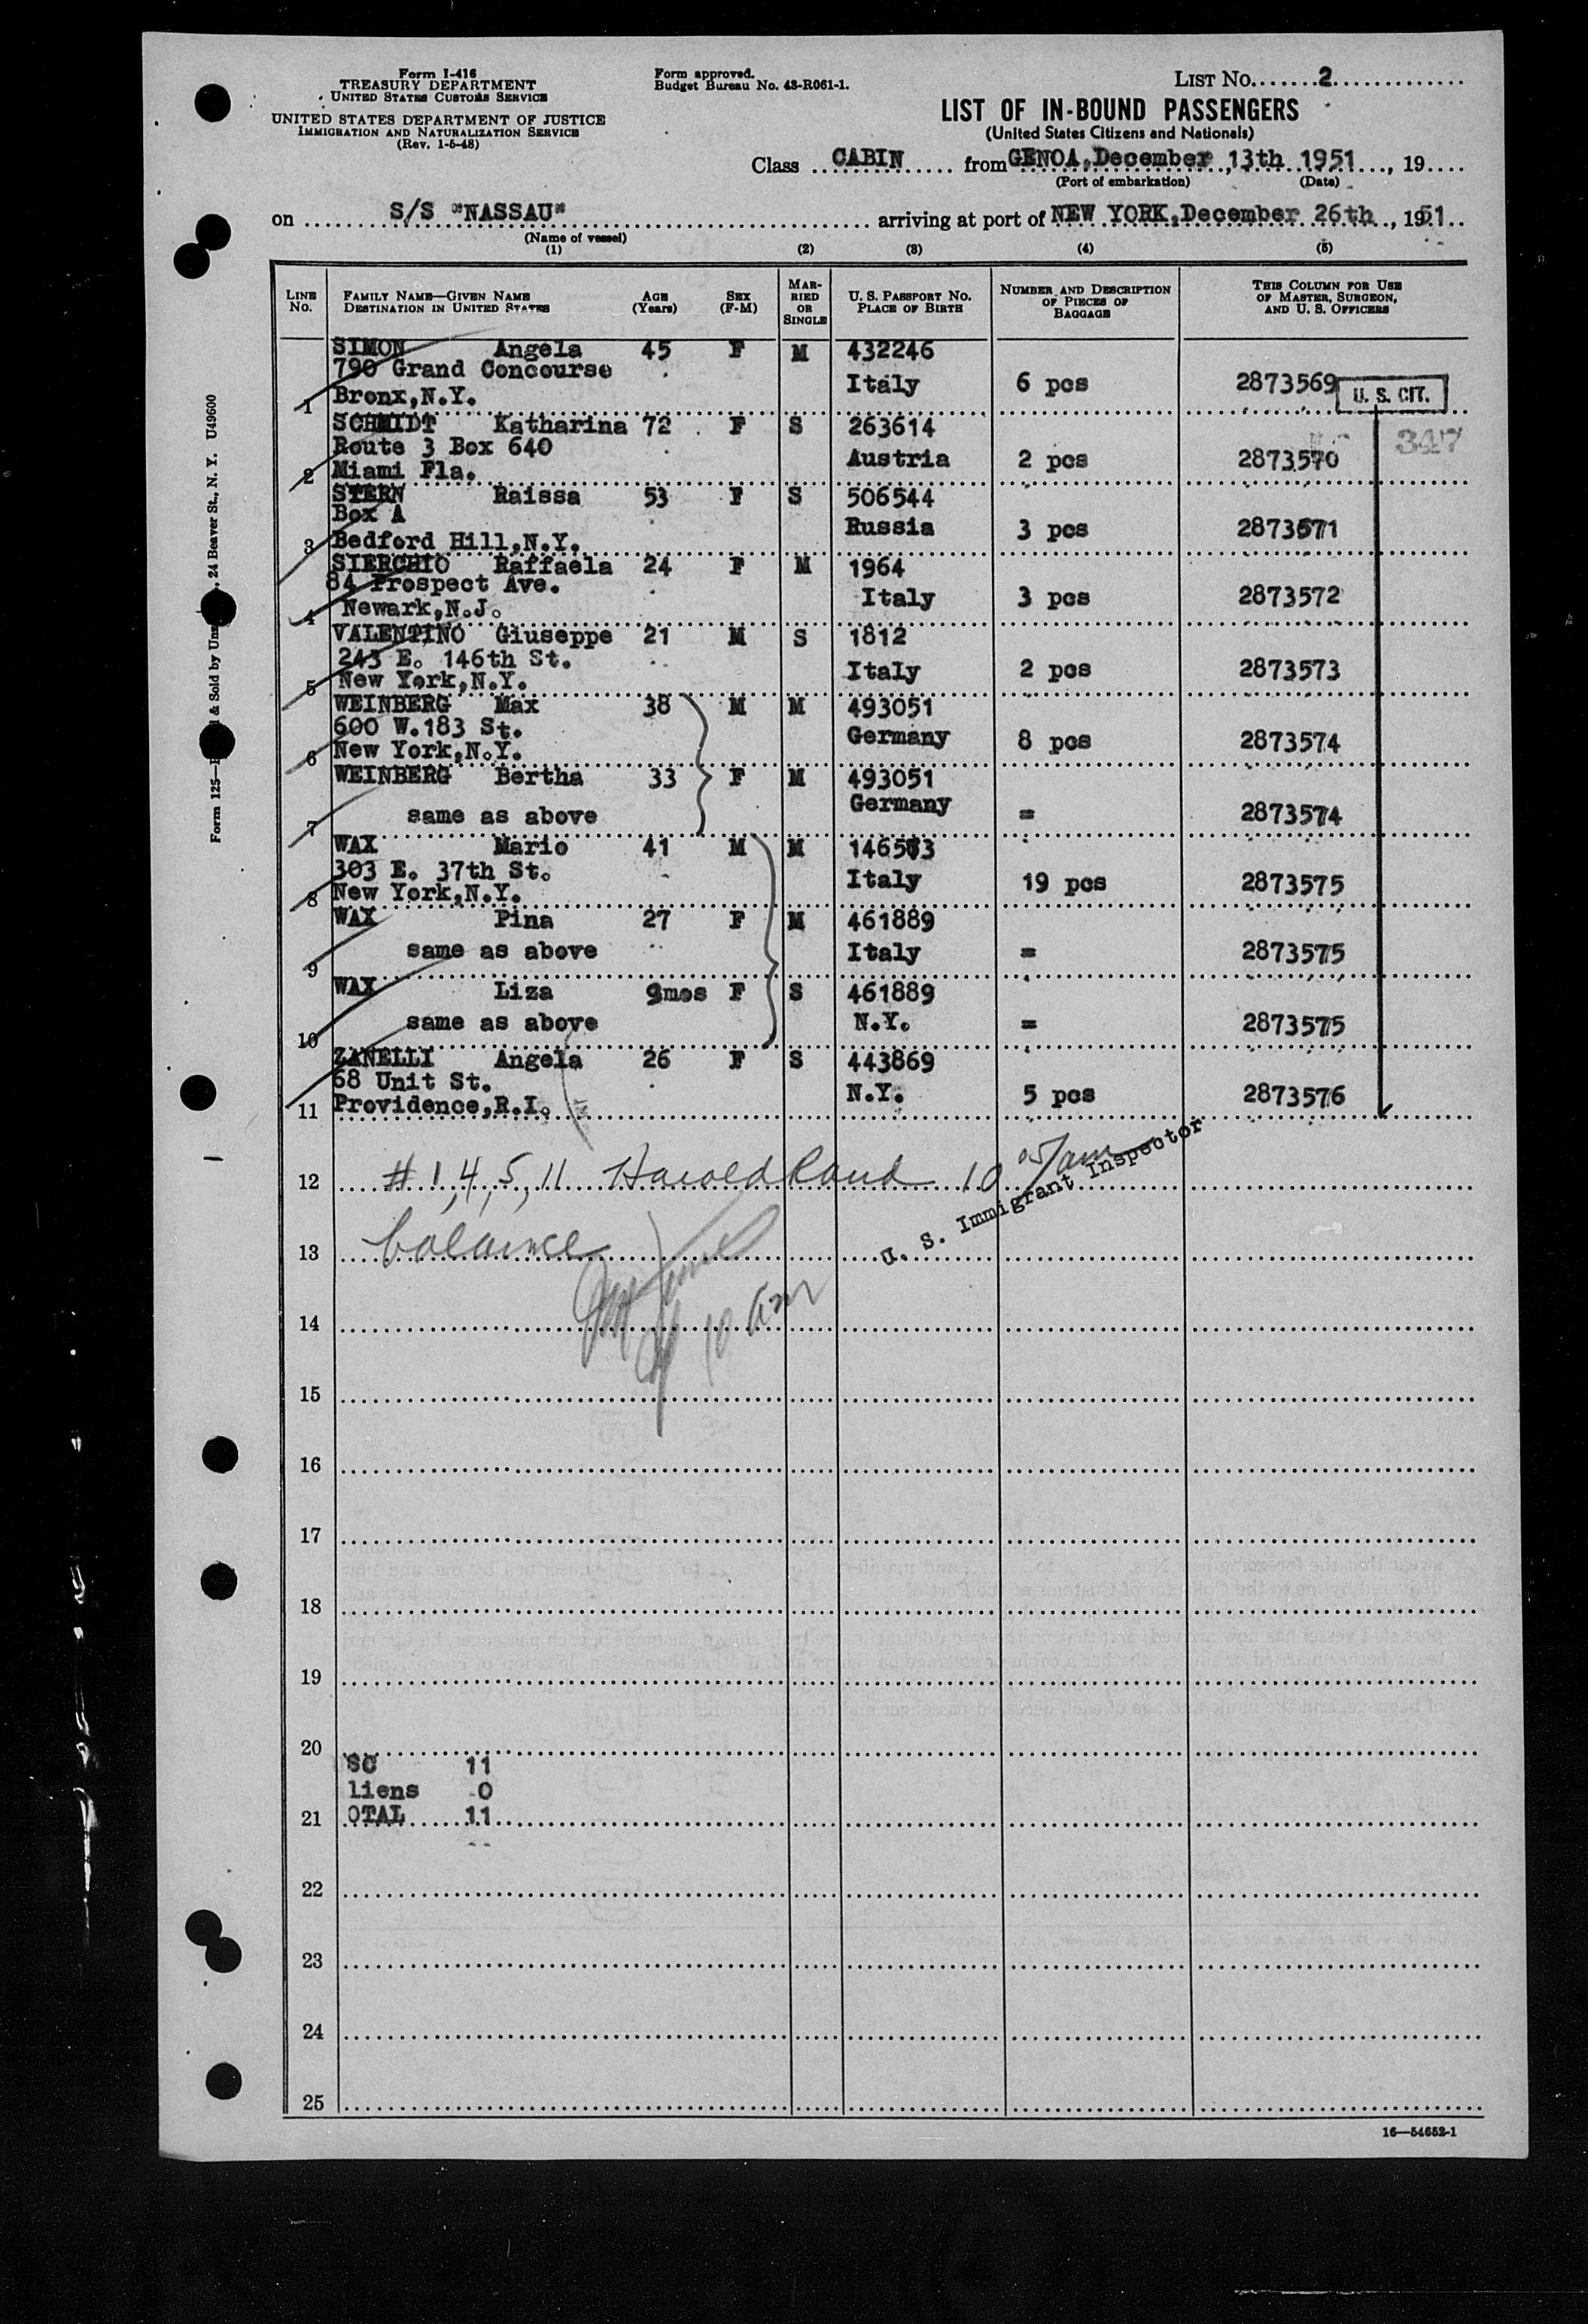 Form I-416
TREASURY DEPARTMENT
UNITED STATES CUSTOMS SERVICE
UNITED STATES DEPARTMENT OF JUSTICE
IMMIGRATION AND NATURALIZATION SERVICE
(Rev. 1-5-48)
Form approved.
Budget Bureau No. 43-R061-1.
LIST NO. 2
LIST OF IN-BOUND PASSENGERS
(United States Citizens and Nationals)
Class CABIN from GENOA, December 13th 1951, 19
(Port of embarkation) (Date)
on S/S "NASSAU" arriving at port of NEW YORK, December 26th, 1951
(Name of vessel)
(1) (2) (3) (4) (5)
LINE NO. FAMILY NAME—GIVEN NAME DESTINATION IN UNITED STATES AGE (Years) SEX (F-M) MARRIED OR SINGLE U. S. PASSPORT NO. PLACE OF BIRTH NUMBER AND DESCRIPTION OF PIECES OF BAGGAGE THIS COLUMN FOR USE OF MASTER, SURGEON, AND U. S. OFFICERS
SIMON Angela 45 F M 432246
790 Grand Concourse
Italy 6 pcs 2873569 U. S. CIT.
1 Bronx,N.Y.
SCHMIDT Katharina 72 F S 263614
347
Route 3 Box 640
Austria 2 pcs 2873570
2 Miami Fla.
STERN Raissa 53 F S 506544
Box A
Russia 3 pcs 2873571
3 Bedford Hill,N.Y.
SIERCHIO Raffaela 24 F M 1964
84 Prospect Ave.
Italy 3 pcs 2873572
4 Newark,N.J.
VALENTINO Giuseppe 21 M S 1812
243 E. 146th St.
Italy 2 pcs 2873573
5 New York,N.Y.
WEINBERG Max 38 M M 493051
600 W.183 St.
Germany 8 pcs 2873574
6 New York,N.Y.
WEINBERG Bertha 33 F M 493051
Germany
7 same as above = 2873574
WAX Mario 41 M M 146503
303 E. 37th St.
Italy 19 pcs 2873575
8 New York,N.Y.
WAX Pina 27 F M 461889
9 same as above Italy = 2873575
WAX Liza 9mos F S 461889
10 same as above N.Y. = 2873575
ZANELLI Angela 26 F S 443869
68 Unit St.
N.Y. 5 pcs 2873576
11 Providence,R.I.
12 #1,4,5,11 Harold Rand 10 05/am
U. S. Immigrant Inspector
13 balance
14 10 am
15
16
17
18
19
20
SC 11
liens 0
21 OTAL 11
22
23
24
25
16—54652-1
Form 125— & Sold by Un , 24 Beaver St., N. Y. U49600